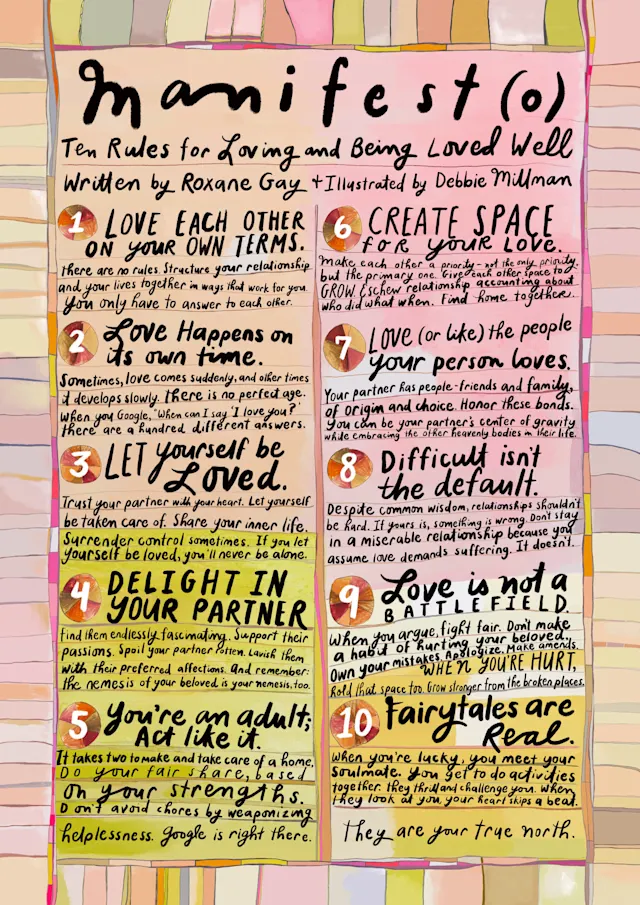 manifest(o)
Ten Rules for Loving and Being Loved Well
Written by Roxane Gay + Illustrated by Debbie Millman
1 LOVE EACH OTHER
ON YOUR OWN TERMS.
There are no rules. Structure your relationship
and your lives together in ways that work for you.
You only have to answer to each other.
2 Love Happens on
its own time.
Sometimes, love comes suddenly, and other times
it develops slowly. There is no perfect age.
When you Google, "When can I say 'I love you?'
there are a hundred different answers.
3 LET yourself be
Loved.
Trust your partner with your heart. Let yourself
be taken care of. Share your inner life.
Surrender control sometimes. If you let
yourself be loved, you'll never be alone.
4 DELIGHT IN
YOUR PARTNER
Find them endlessly fascinating. Support their
passions. Spoil your partner rotten. Lavish them
with their preferred affections. And remember:
the nemesis of your beloved is your nemesis, too.
5 You're an adult;
Act like it.
It takes two to make and take care of a home.
Do your fair share, based
on your strengths.
Don't avoid chores by weaponizing
helplessness. Google is right there.
6 CREATE SPACE
for YOUR LOVE.
Make each other a priority - not the only priority,
but the primary one. Give each other space to
GROW. Eschew relationship accounting about
who did what when. Find home together.
7 LOVE (or like) the people
your person loves.
Your partner has people - friends and family,
of origin and choice. Honor these bonds.
You can be your partner's center of gravity
while embracing the other heavenly bodies in their life.
8 Difficult isn't
the default.
Despite common wisdom, relationships shouldn't
be hard. If yours is, something is wrong. Don't stay
in a miserable relationship because you
assume love demands suffering. It doesn't.
9 Love is not a
BATTLEFIELD.
When you argue, fight fair. Don't make
a habit of hurting your beloved.
Own your mistakes. Apologize. Make amends.
WHEN YOU'RE HURT,
hold that space too. Grow stronger from the broken places.
10 Fairytales are
Real.
When you're lucky, you meet your
Soulmate. You get to do activities
together. They thrill and challenge you. When
they look at you, your heart skips a beat.
They are your true north.